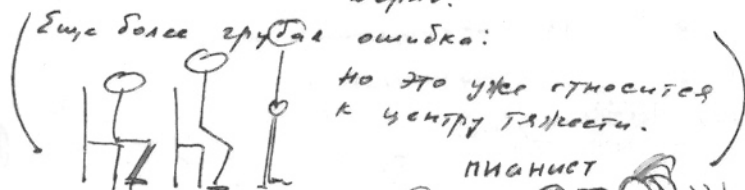 (Еще более грубая ошибка:
но это уже относится
к центру тяжести.)
пианист